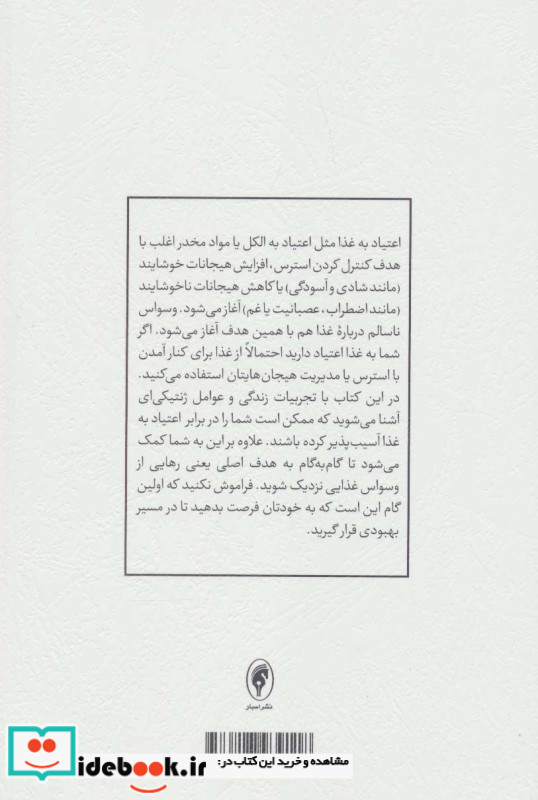 اعتیاد به غذا مثل اعتیاد به الکل یا مواد مخدر اغلب با
هدف کنترل کردن استرس، افزایش هیجانات خوشایند
(مانند شادی و آسودگی) یا کاهش هیجانات ناخوشایند
(مانند اضطراب، عصبانیت یا غم) آغاز می‌شود. وسواس
ناسالم دربارهٔ غذا هم با همین هدف آغاز می‌شود. اگر
شما به غذا اعتیاد دارید احتمالاً از غذا برای کنار آمدن
با استرس یا مدیریت هیجان‌هایتان استفاده می‌کنید.
در این کتاب با تجربیات زندگی و عوامل ژنتیکی‌ای
آشنا می‌شوید که ممکن است شما را در برابر اعتیاد به
غذا آسیب‌پذیر کرده باشند. علاوه بر این به شما کمک
می‌شود تا گام‌به‌گام به هدف اصلی یعنی رهایی از
وسواس غذایی نزدیک شوید. فراموش نکنید که اولین
گام این است که به خودتان فرصت بدهید تا در مسیر
بهبودی قرار گیرید.
نشر اسبار
مشاهده و خرید این کتاب در:
idebook.ir